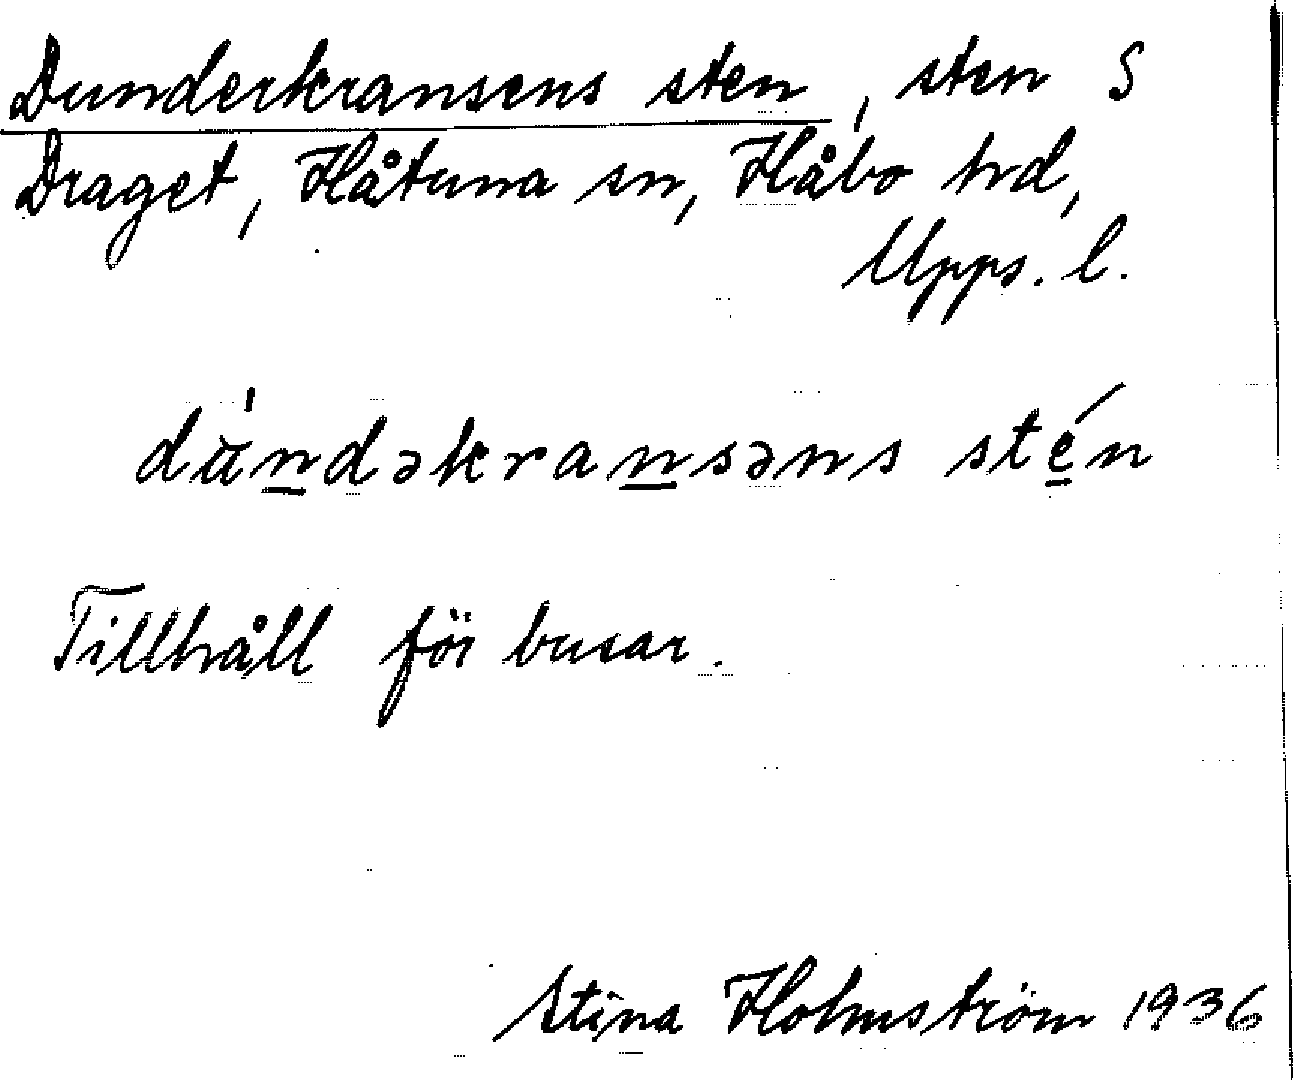 Dunderkransens sten, sten S
Draget, Håtuna sn, Håbo hd,
Upps. l.
dùndəkransəns stén
Tillhåll för busar.
Stina Holmström 1936